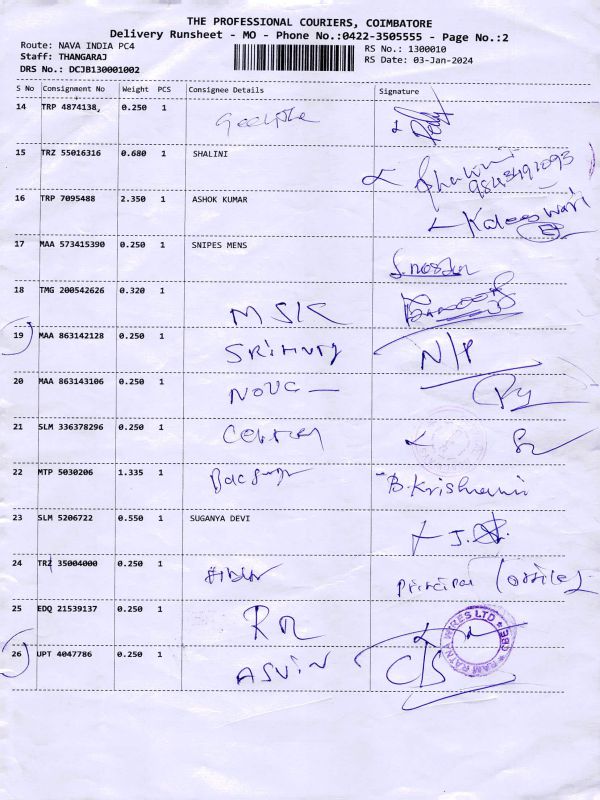 THE PROFESSIONAL COURIERS, COIMBATORE
Delivery Runsheet - MO - Phone No.:0422-3505555 - Page No.:2
Route: NAVA INDIA PC4
RS No.: 1300010
Staff: THANGARAJ
RS Date: 03-Jan-2024
DRS No.: DCJB130001002
S No Consignment No Weight PCS Consignee Details Signature
14 TRP 4874138, 0.250 1
15 TRZ 55016316 0.680 1 SHALINI
9843491093
16 TRP 7095488 2.350 1 ASHOK KUMAR
Kaleeswari
17 MAA 573415390 0.250 1 SNIPES MENS
18 TMG 200542626 0.320 1 MSK
19 MAA 863142128 0.250 1 N/P
20 MAA 863143106 0.250 1 NOVA
21 SLM 336378296 0.250 1
22 MTP 5030206 1.335 1 B. Krishnaveni
23 SLM 5206722 0.550 1 SUGANYA DEVI
24 TRZ 35004000 0.250 1 principal (office)
25 EDQ 21539137 0.250 1 RR
RAM RATNA WIRES LTD ★ CBE ★
26 UPT 4047786 0.250 1 ASVIN